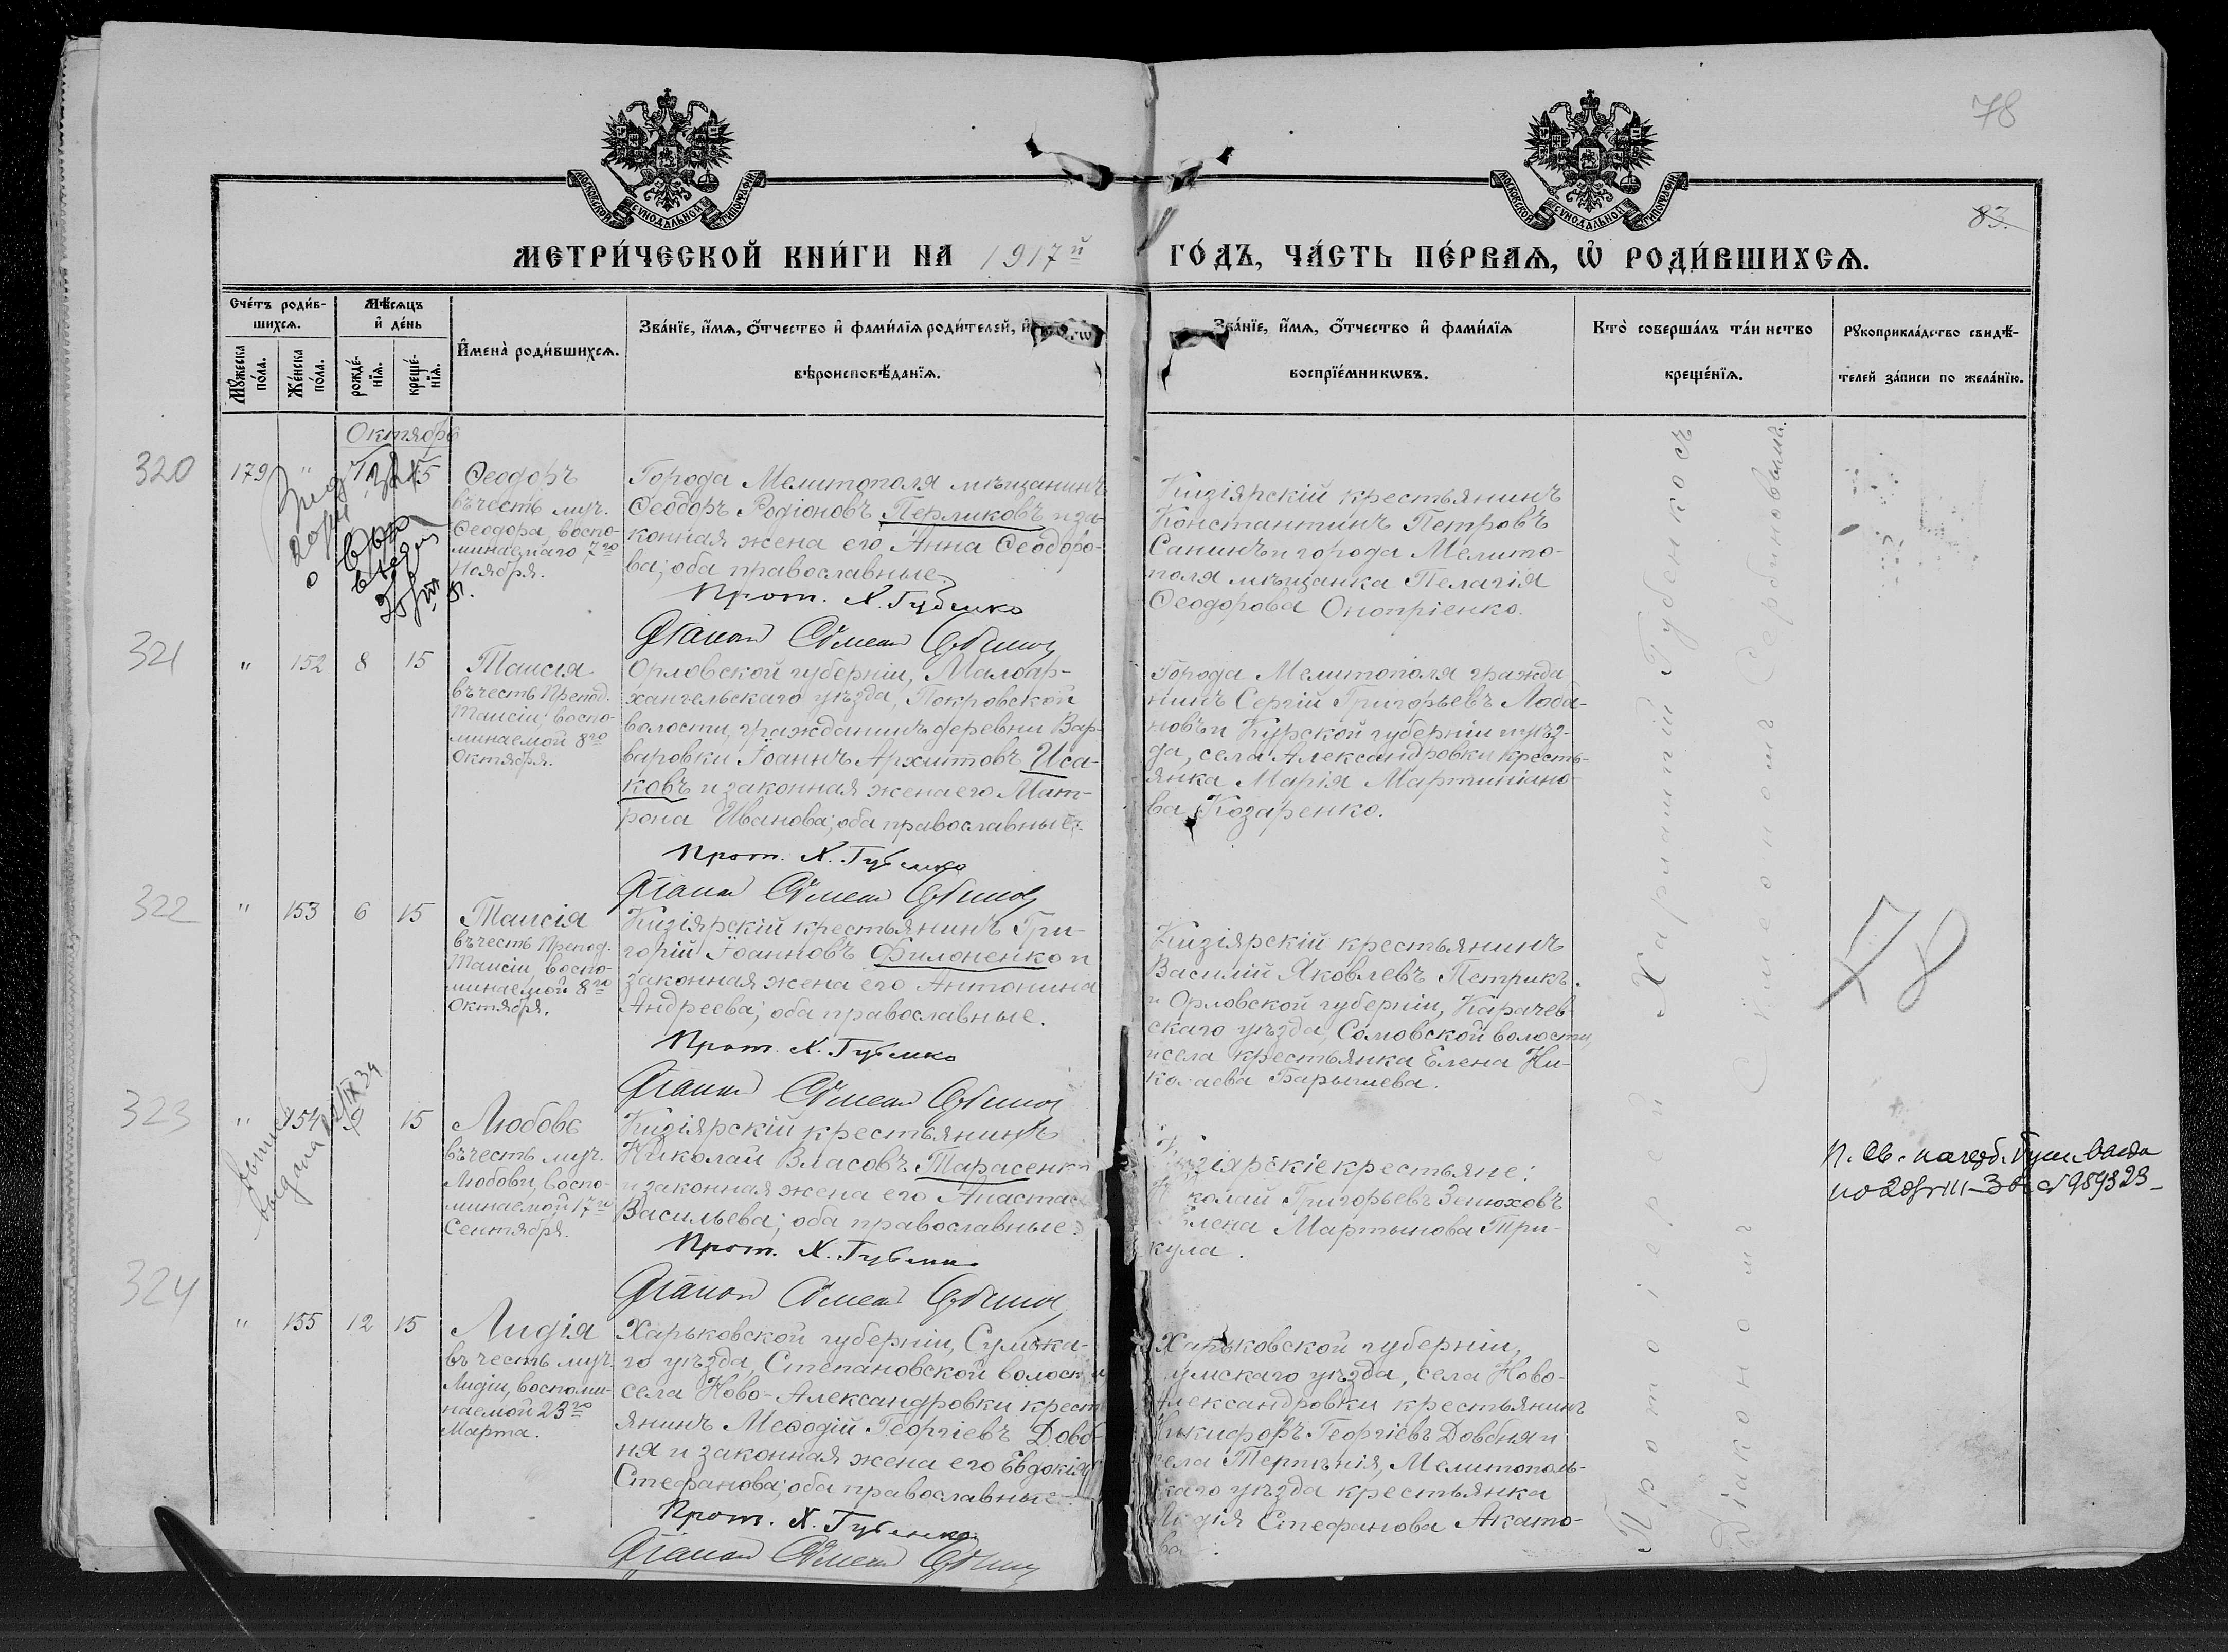 78
83.
МОСКОВСКОЙ СѴНОДАЛЬНОЙ ТИПОГРАФІИ
МОСКОВСКОЙ СѴНОДАЛЬНОЙ ТИПОГРАФІИ
МЕТРИ́ЧЕСКОЙ КНИ́ГИ НА 1917й ГО́ДЪ, ЧА́СТЬ ПЕ́РВАѦ, Ѡ҆ РОДИ́ВШИХСѦ.
Сче́тъ роди́в-
шихсѧ.
Мѣ́сѧцъ
и҆ де́нь
Мꙋ́жеска
по́ла.
Же́нска
по́ла.
рожде́-
нїѧ.
креще́-
нїѧ.
И҆мена̀ роди́вшихсѧ.
Зва́нїе, и҆́мѧ, ѻ҆́тчество и҆ фами́лїѧ роди́телей, и҆
вѣроисповѣ́данїѧ.
Зва́нїе, и҆́мѧ, ѻ҆́тчество и҆ фами́лїѧ
воспрїе́мникѡвъ.
Кто̀ соверша́лъ та́инство
креще́нїѧ.
Рꙋкоприкла́дство свидѣ́-
телей за́писи по жела́нїю.
Октябрь
320
179 " 15
Ѳеодоръ
въ честь муч.
Ѳеодора, воспо-
минаемаго 7го
Ноября.
Города Мелитополя мѣщанинъ
Ѳеодоръ Родіоновъ Перликовъ и за-
конная жена его Анна Ѳеодоро-
ва; оба православные.
Прот. Х. Губенко
Діаконъ Симеонъ
Кизіярскій крестьянинъ
Константинъ Петровъ
Санинъ и города Мелито-
поля мѣщанка Пелагія
Ѳеодорова Оноприенко.
321
" 152 8 15
Таисія
въ честь Препод.
Таисіи, воспо-
минаемой 8го
Октября.
Орловской губерніи, Малоар-
хангельскаго уѣзда, Покровской
волости, гражданинъ деревни Вар-
варовки Іоаннъ Архиповъ Иса-
ковъ и законная жена его Мат-
рона Иванова; оба православные.
Прот. Х. Губенко
Діаконъ Симеонъ
Города Мелитополя гражда-
нинъ Сергій Григорьевъ Лоба-
новъ и Курской губерніи и уѣз-
да, села Александровки кресть-
янка Марія Мартиніано-
ва Козаренко.
322
" 153 6 15
Таисія
въ честь Препод.
Таисіи, воспо-
минаемой 8го
Октября.
Кизіярскій крестьянинъ Гри-
горій Іоанновъ Филоненко и
законная жена его Антонина
Андреева; оба православные.
Прот. Х. Губенко
Діаконъ Симеонъ
Кизіярскій крестьянинъ
Василій Яковлевъ Петрикъ
и Орловской губерніи, Карачев-
скаго уѣзда, Самовской волости
и села крестьянка Елена Ни-
колаева Барышева.
78
323
" 154 15
Любовь
въ честь муч.
Любови, воспо-
минаемой 17го
Сентября.
Кизіярскій крестьянинъ
Николай Власовъ Тарасенко
и законная жена его Анастас
Васильева; оба православные.
Прот. Х. Губенко
Діаконъ Симеонъ
Кизіярскіе крестьяне:
Николай Григорьевъ Зенюховъ
Елена Мартынова Три-
кула.
324
" 155 12 15
Лидія
въ честь муч.
Лидіи, воспоми-
наемой 23го
Марта.
Харьковской губерніи, Сумска-
го уѣзда, Степановской волости
села Ново-Александровки крест
янинъ Меѳодій Георгіевъ Довб-
ня и законная жена его Евдокія
Стефанова; оба православные.
Прот. Х. Губенко
Діаконъ Симеонъ
Харьковской губерніи,
Сумскаго уѣзда, села Ново-
Александровки крестьянинъ
Никифоръ Георгіевъ Довбня и
села Терпѣнія, Мелитополь-
скаго уѣзда крестьянка
Лидія Стефанова Акато-
ва.
Протоіерей Харлампій Губенко съ
Діакономъ Симеономъ